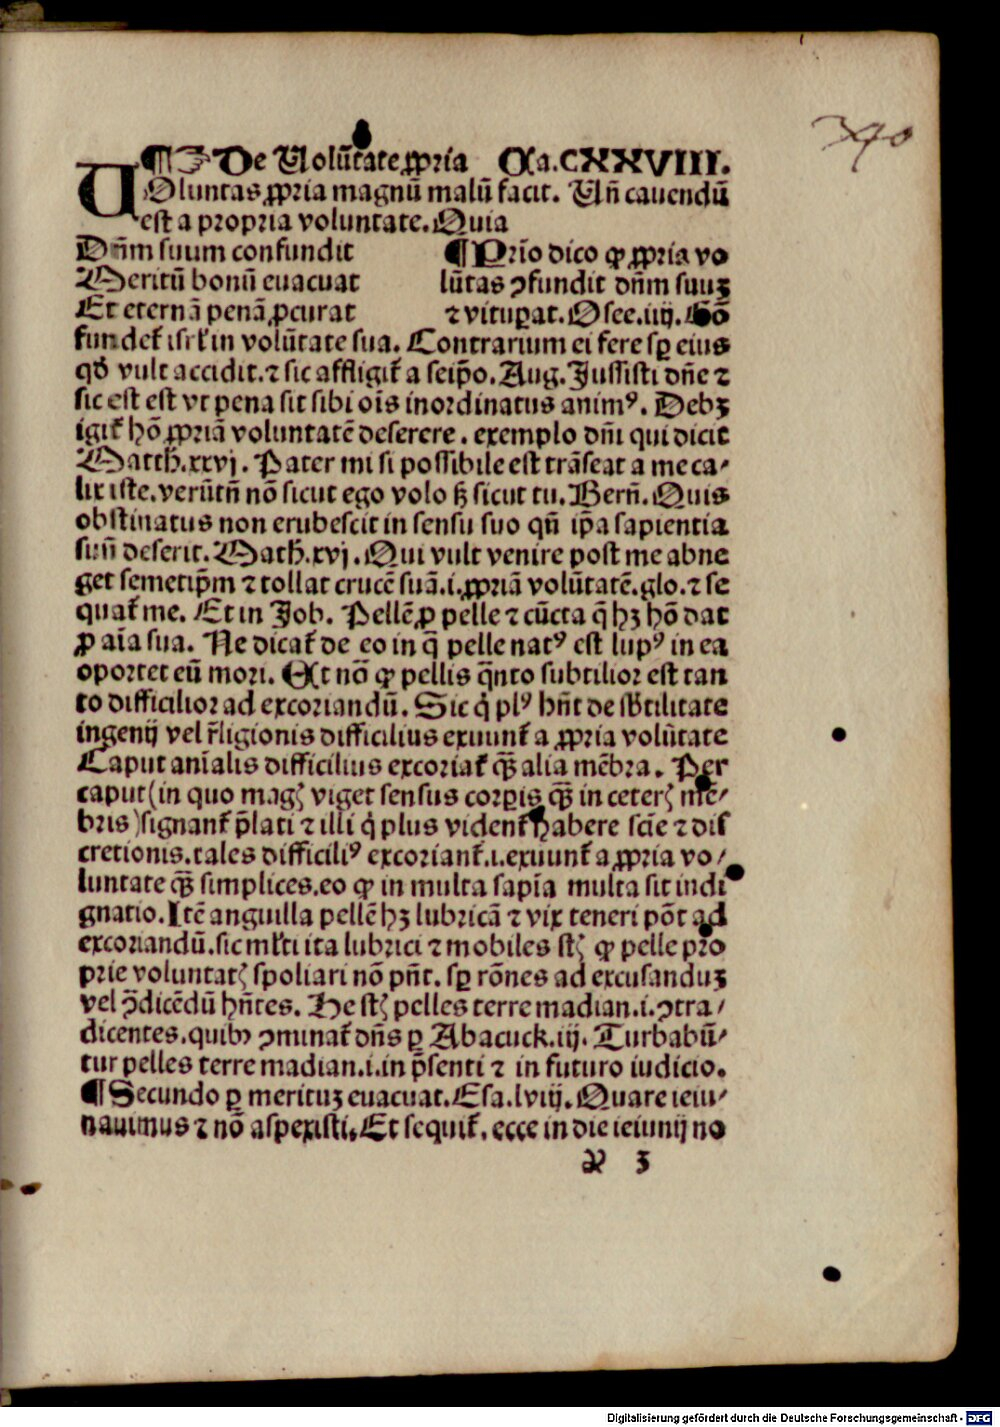 340
¶ ☞ De Volūtate ꝓpria Ca. CXXVIII.
VOluntas ꝓpria magnū malū facit. Vñ cauendū
est a propria voluntate. Quia
Dñm suum confundit
Meritū bonū euacuat
Et eternā penā ꝓcurat
¶ Prīo dico ꝙ ꝓpria vo
lūtas ↄfundit dñm suuꝫ
⁊ vituꝑat. Osee.iiij. Cō
fundet᷑ isrl̓ in volūtate sua. Contrarium ei fere sꝑ eius
qđ vult accidit. ⁊ sic affligit᷑ a seip̄o. Aug. Jussisti dñe ⁊
sic est est vt pena sit sibi oīs inordinatus animꝰ. Debꝫ
igit᷑ hō ꝓpriā voluntatē deserere. exemplo dñi qui dicit
Matth̄.xxvj. Pater mi si possibile est trāseat a me ca⸗
lix iste. verūtñ nō sicut ego volo sꝫ sicut tu. Berñ. Quis
obstinatus non erubescit in sensu suo qñ ip̄a sapientia
suū deserit. Math̄.xvj. Qui vult venire post me abne
get semetip̄m ⁊ tollat crucē suā.i.ꝓpriā volūtatē.glo.⁊ se
quat᷑ me. Et in Job. Pellē ꝓ pelle ⁊ cūcta q̄ hꝫ hō dat
ꝓ aīa sua. Ne dicat᷑ de eo in q̄ pelle natꝰ est lupꝰ in ea
oportet eū mori. Et nō ꝙ pellis q̄nto subtilior est tan
to difficilior ad excoriandū. Sic q̇ plꝰ hñt de sb̓tilitate
ingenij vel r̓ligionis difficilius exuunt᷑ a ꝓpria volūtate
Caput aīalis difficilius excoriat᷑ q̄ꝫ alia mēbra. Per
caput (in quo magꝭ viget sensus corꝑis q̄ꝫ in ceterꝭ mē⸗
bris) signant᷑ p̄lati ⁊ illi q̇ plus vident᷑ habere scīe ⁊ dis
cretionis. tales difficiliꝰ excoriant᷑.i.exuunt᷑ a ꝓpria vo⸗
luntate q̄ꝫ simplices. eo ꝙ in multa sapīa multa sit indi
gnatio. Itē anguilla pellē hꝫ lubricā ⁊ vix teneri pōt ad
excoriandū. sic ml̓ti ita lubrici ⁊ mobiles st̄ꝭ ꝙ pelle pro
prie voluntatꝭ spoliari nō pñt. sꝑ rōnes ad excusanduꝫ
vel ↄ̄dicēdū hñtes. He st̄ꝭ pelles terre madian.i.ↄtra⸗
dicentes. quibꝰ ↄminat᷑ dñs ꝑ Abacuck.iij. Turbabū⸗
tur pelles terre madian.i.in p̄senti ⁊ in futuro iudicio.
¶ Secundo ꝑ merituꝫ euacuat. Esa.lviij. Quare ieiu⸗
nauimus ⁊ nō aspexisti. Et sequit᷑. ecce in die ieiunij no
ꝛ 3
Digitalisierung gefördert durch die Deutsche Forschungsgemeinschaft - DFG